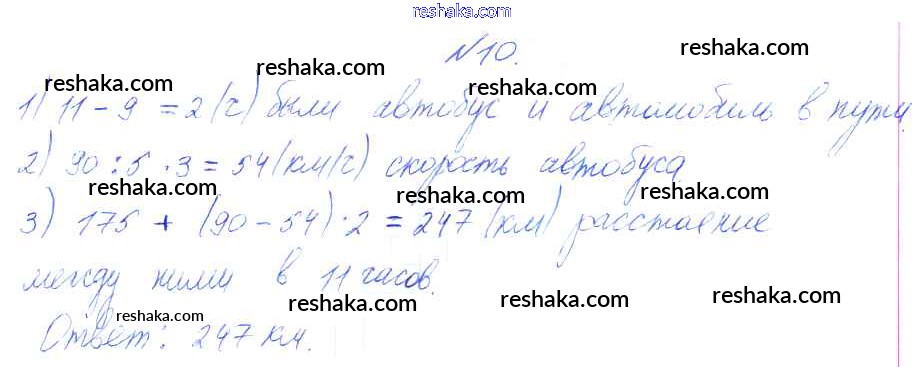 reshaka.com
№10. reshaka.com
reshaka.com
reshaka.com
1) 11 - 9 = 2 (ч) были автобус и автомобиль в пути.
reshaka.com reshaka.com
2) 90 : 5 · 3 = 54 (км/ч) скорость автобуса
reshaka.com reshaka.com reshaka.com
3) 175 + (90 - 54) · 2 = 247 (км) расстояние
между ними в 11 часов.
reshaka.com reshaka.com reshaka.com
reshaka.com
Ответ: 247 км.